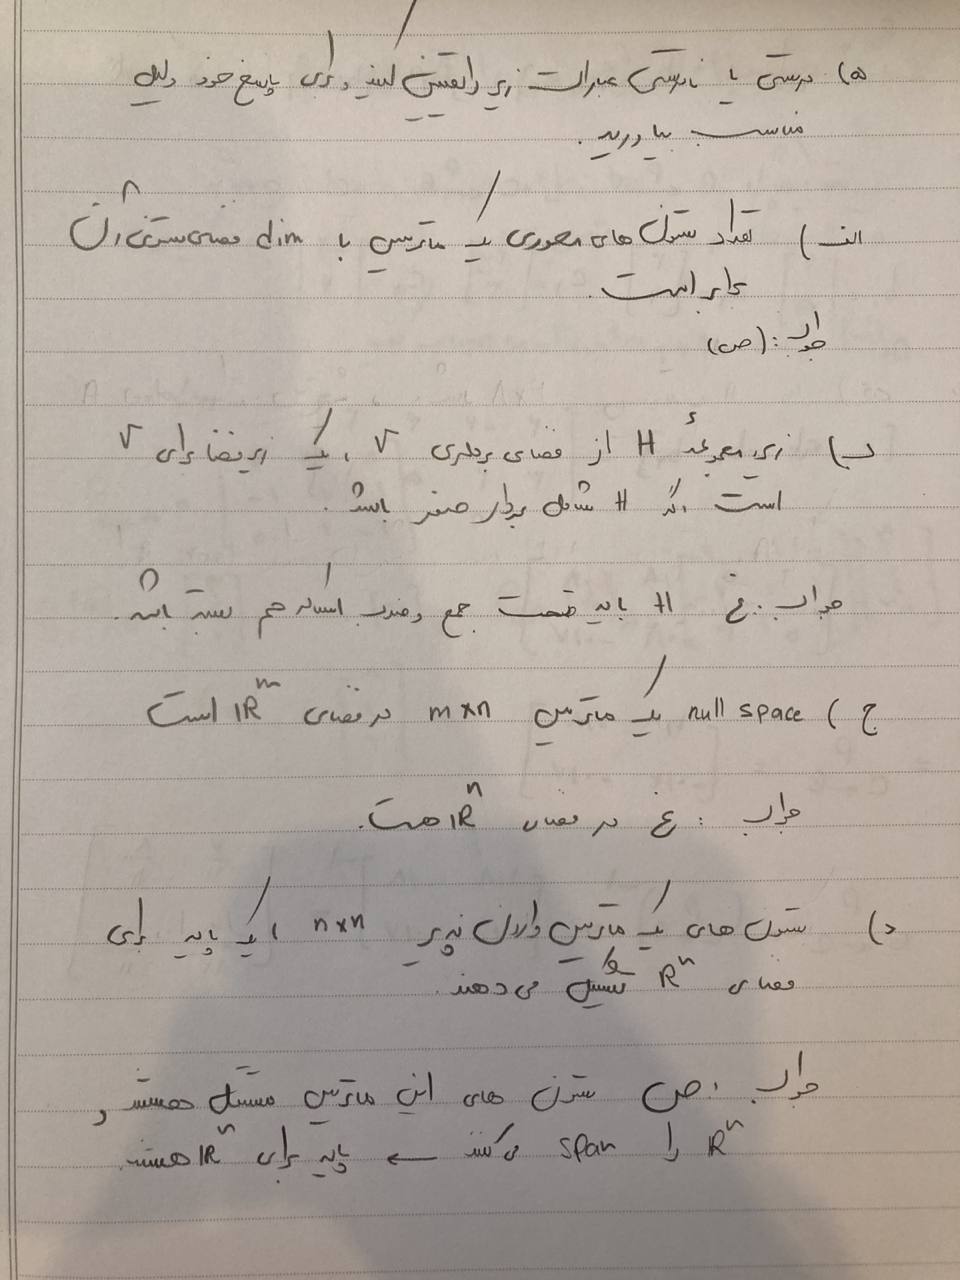 ۵) درستی یا نادرستی عبارات زیر را تعیین کنید و برای پاسخ خود دلیل
مناسب بیاورید.
الف) تعداد ستون های محوری یک ماتریس با dim فضای ستونی آن
برابر است.
جواب: (ص)
ب) زیرمجموعهٔ H از فضای برداری V ، یک زیرفضا برای V
است اگر H شامل بردار صفر باشد.
جواب: غ H باید تحت جمع و ضرب اسکالر هم بسته باشد.
ج) null space یک ماتریس m×n در فضای ℝᵐ است
جواب: غ در فضای ℝⁿ هست.
د) ستون های یک ماتریس وارون پذیر n×n ، یک پایه برای
فضای Rⁿ تشکیل می دهند.
جواب: ص ستون های این ماتریس مستقل هستند و
Rⁿ را span می کنند ← پایه برای ℝⁿ هستند.